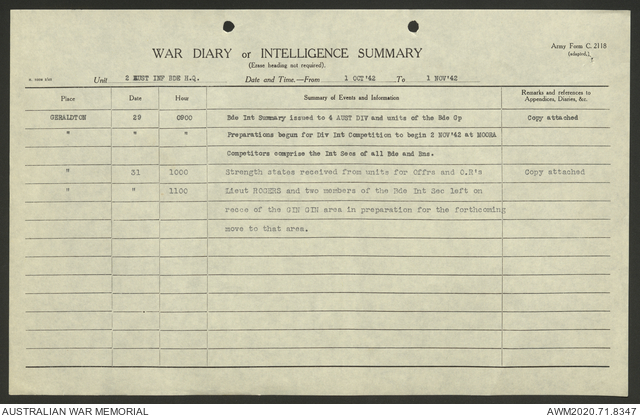 Army Form C. 2118
(adapted.)
WAR DIARY or INTELLIGENCE SUMMARY
(Erase heading not required).
Unit 2 AUST INF BDE H.Q. Date and Time.—From 1 OCT'42 To 1 NOV'42
Place Date Hour Summary of Events and Information Remarks and references to Appendices, Diaries, &c.
GERALDTON 29 0900 Bde Int Summary issued to 4 AUST DIV and units of the Bde Gp Copy attached
" " " Preparations begun for Div Int Competition to begin 2 NOV'42 at MOORA
Competitors comprise the Int Secs of all Bde and Bns.
" 31 1000 Strength states received from units for Offrs and O.R's Copy attached
" " 1100 Lieut ROGERS and two members of the Bde Int Sec left on
recce of the GIN GIN area in preparation for the forthcoming
move to that area.
AUSTRALIAN WAR MEMORIAL AWM2020.71.8347